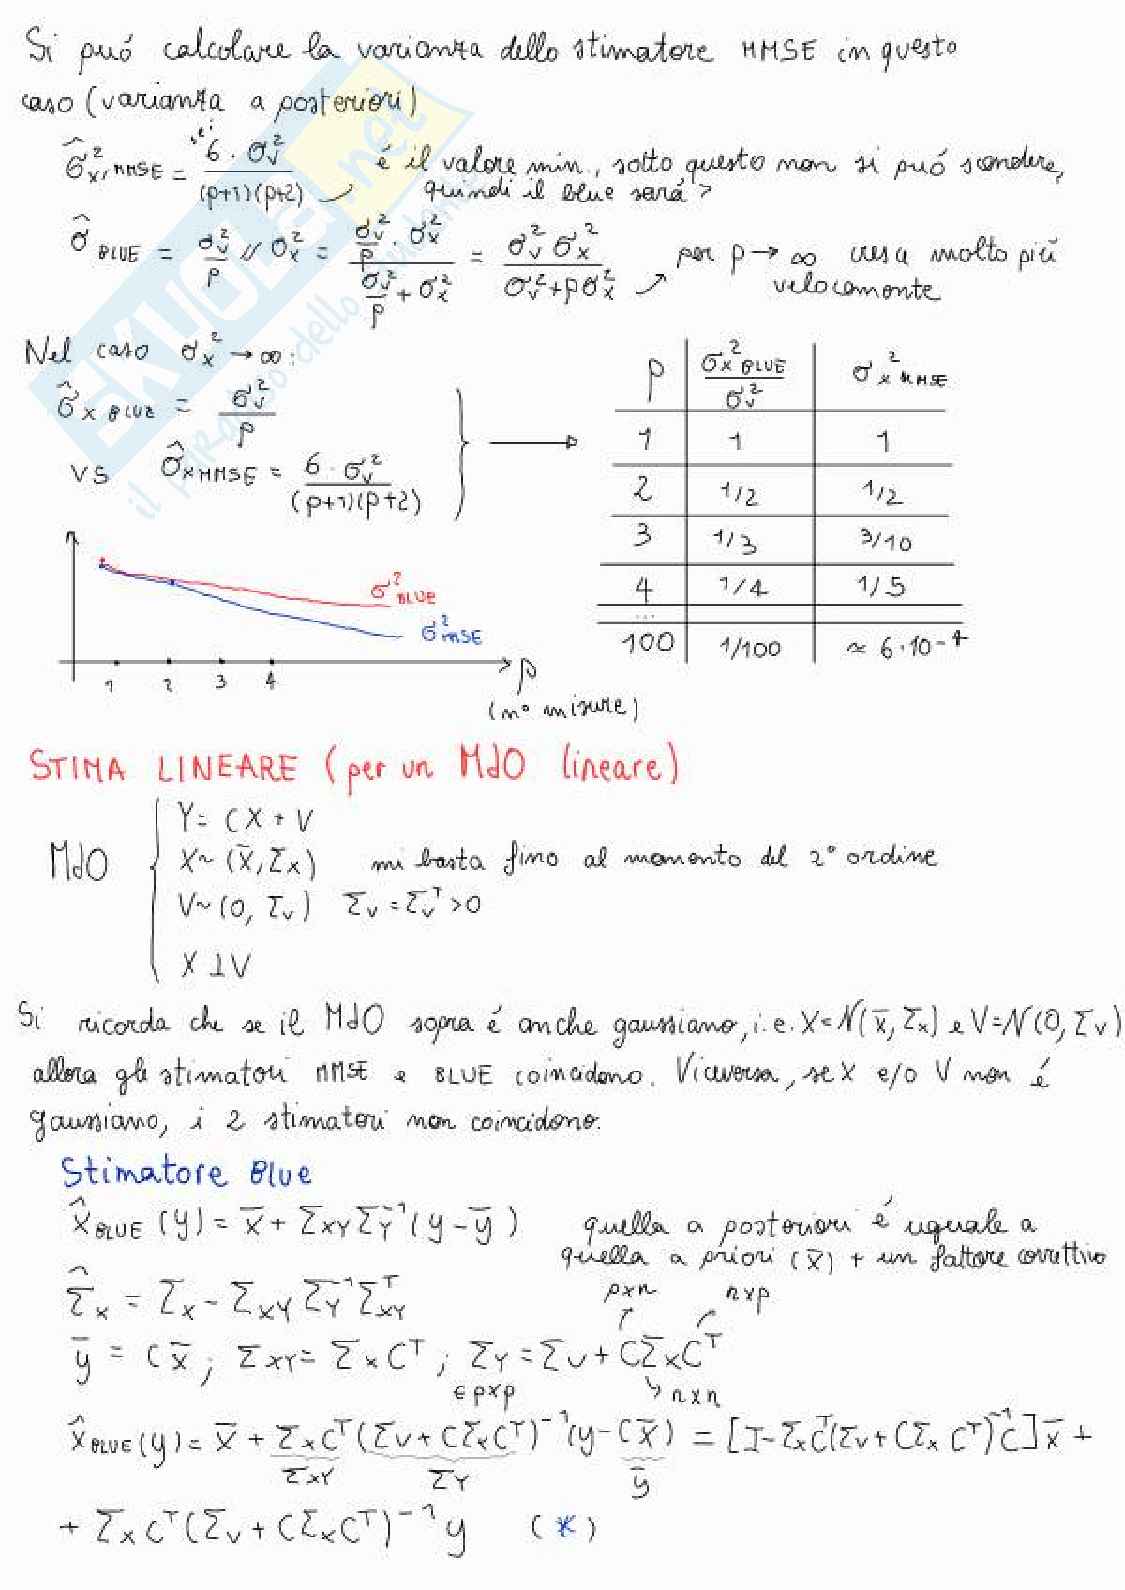 Si può calcolare la varianza dello stimatore MMSE in questo
caso (varianza a posteriori)
σ̂²x,MMSE = 6·σv² / (p+1)(p+2) è il valore min., sotto questo non si può scendere,
quindi il blue sarà >
σ̂ BLUE = σv²/p // σx² = (σv²/p · σx²) / (σv²/p + σx²) = σv² σx² / (σv² + pσx²) per p → ∞ cresce molto più
velocemente
Nel caso σx² → ∞:
σ̂x BLUE = σv²/p
vs σ̂x MMSE = 6·σv² / (p+1)(p+2)
p | σx²BLUE / σv² | σx²MMSE
1 | 1 | 1
2 | 1/2 | 1/2
3 | 1/3 | 3/10
4 | 1/4 | 1/5
...
100 | 1/100 | ≃ 6·10⁻⁴
σ²BLUE
σ²mSE
1 2 3 4 p
(n° misure)
STIMA LINEARE (per un MdO lineare)
Y = CX + V
MdO X~(x̄, Σx) mi basta fino al momento del 2° ordine
V~(0, Σv) Σv = Σvᵀ > 0
X ⊥ V
Si ricorda che se il MdO sopra è anche gaussiano, i.e. X=N(x̄, Σx) e V=N(0, Σv)
allora gli stimatori MMSE e BLUE coincidono. Viceversa, se X e/o V non è
gaussiano, i 2 stimatori non coincidono.
Stimatore Blue
x̂BLUE(y) = x̄ + ΣXY ΣY⁻¹ (y - ȳ) quella a posteriori è uguale a
quella a priori (x̄) + un fattore correttivo
Σ̂x = Σx - ΣXY ΣY⁻¹ ΣXYᵀ p×n n×p
ȳ = C x̄ ; ΣXY = Σx Cᵀ ; ΣY = Σv + CΣxCᵀ
∈ p×p n×n
x̂BLUE(y) = x̄ + ΣxCᵀ(Σv + CΣxCᵀ)⁻¹(y - Cx̄) = [I - ΣxCᵀ(Σv + CΣx Cᵀ)⁻¹C]x̄ +
ΣXY ΣY ȳ
+ ΣxCᵀ(Σv + CΣxCᵀ)⁻¹ y (*)